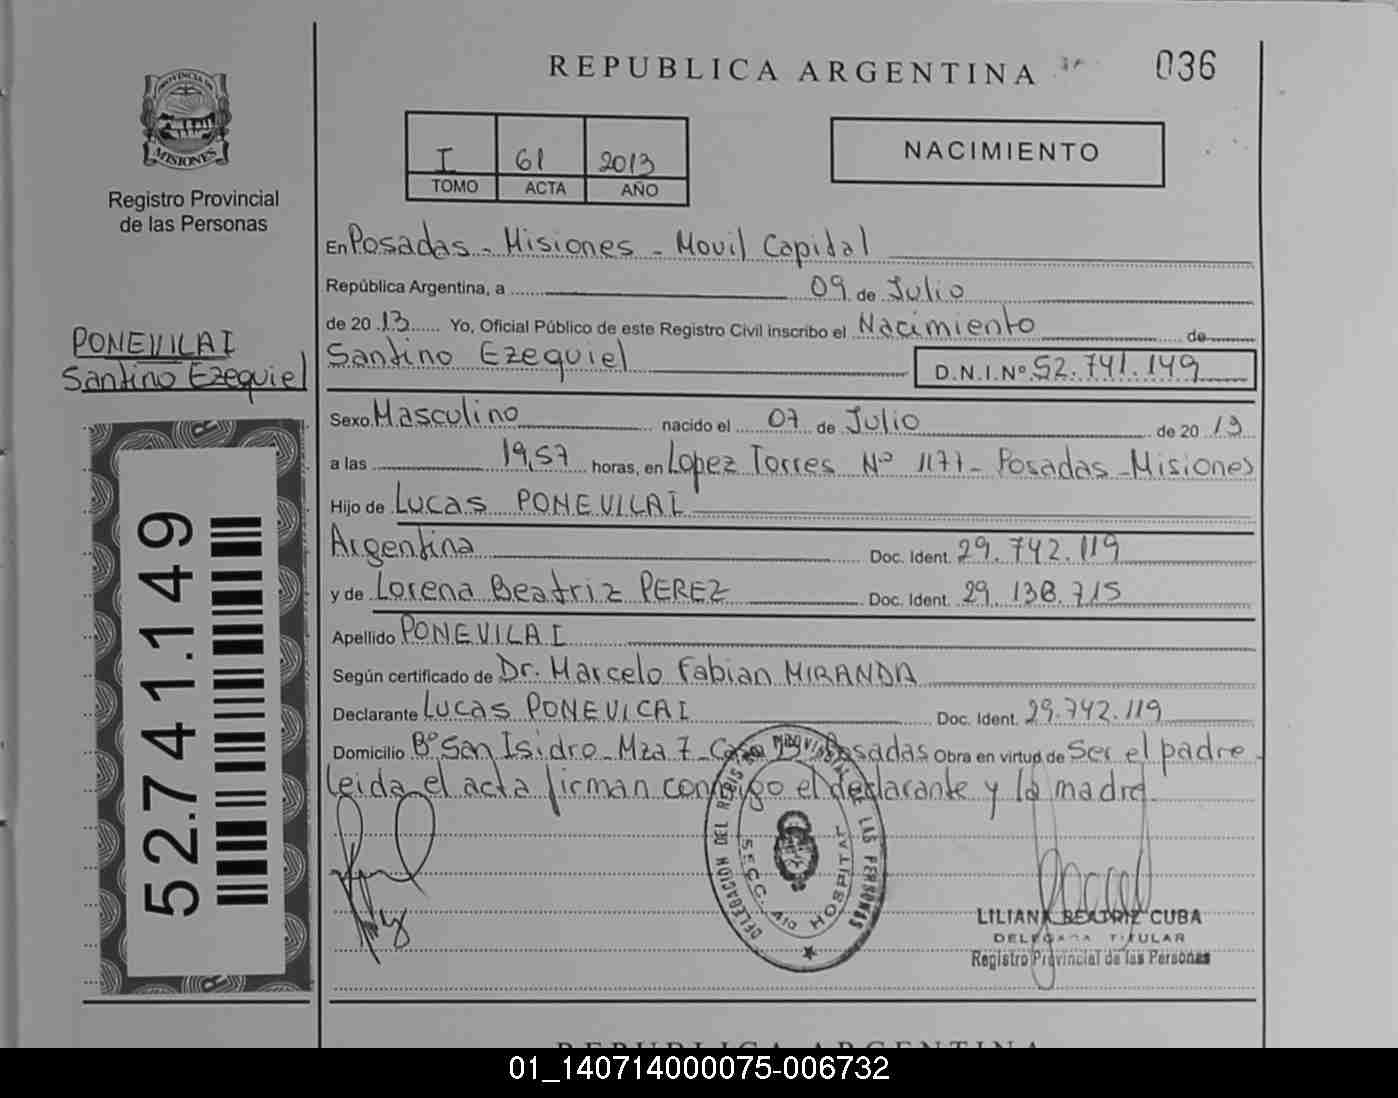 REPUBLICA ARGENTINA
036
PROVINCIA DE
MISIONES
Registro Provincial
de las Personas
I 61 2013
TOMO ACTA AÑO
NACIMIENTO
En Posadas - Misiones - Movil Capital
República Argentina, a 09 de Julio
de 20 13 Yo, Oficial Público de este Registro Civil inscribo el Nacimiento de
Santino Ezequiel D.N.I.Nº 52.741.149
PONEVILAI
Santino Ezequiel
52.741.149
Sexo Masculino nacido el 07 de Julio de 20 13
a las 19,57 horas, en Lopez Torres Nº 1177- Posadas - Misiones
Hijo de Lucas PONEVILAI
Argentina Doc. Ident. 29.742.119
y de Lorena Beatriz PEREZ Doc. Ident. 29.138.715
Apellido PONEVILAI
Según certificado de Dr. Marcelo Fabian MIRANDA
Declarante Lucas PONEVICAI Doc. Ident. 29.742.119
Domicilio Bº San Isidro - Mza 7 - Posadas Obra en virtud de Ser el padre -
leida el acta firman conmigo el declarante y la madre
DELEGACION DEL REGISTRO PROVINCIAL DE LAS PERSONAS
SECC. 4ta HOSPITAL
LILIANA BEATRIZ CUBA
DELEGADA TITULAR
Registro Provincial de las Personas
REPUBLICA ARGENTINA
01_140714000075-006732